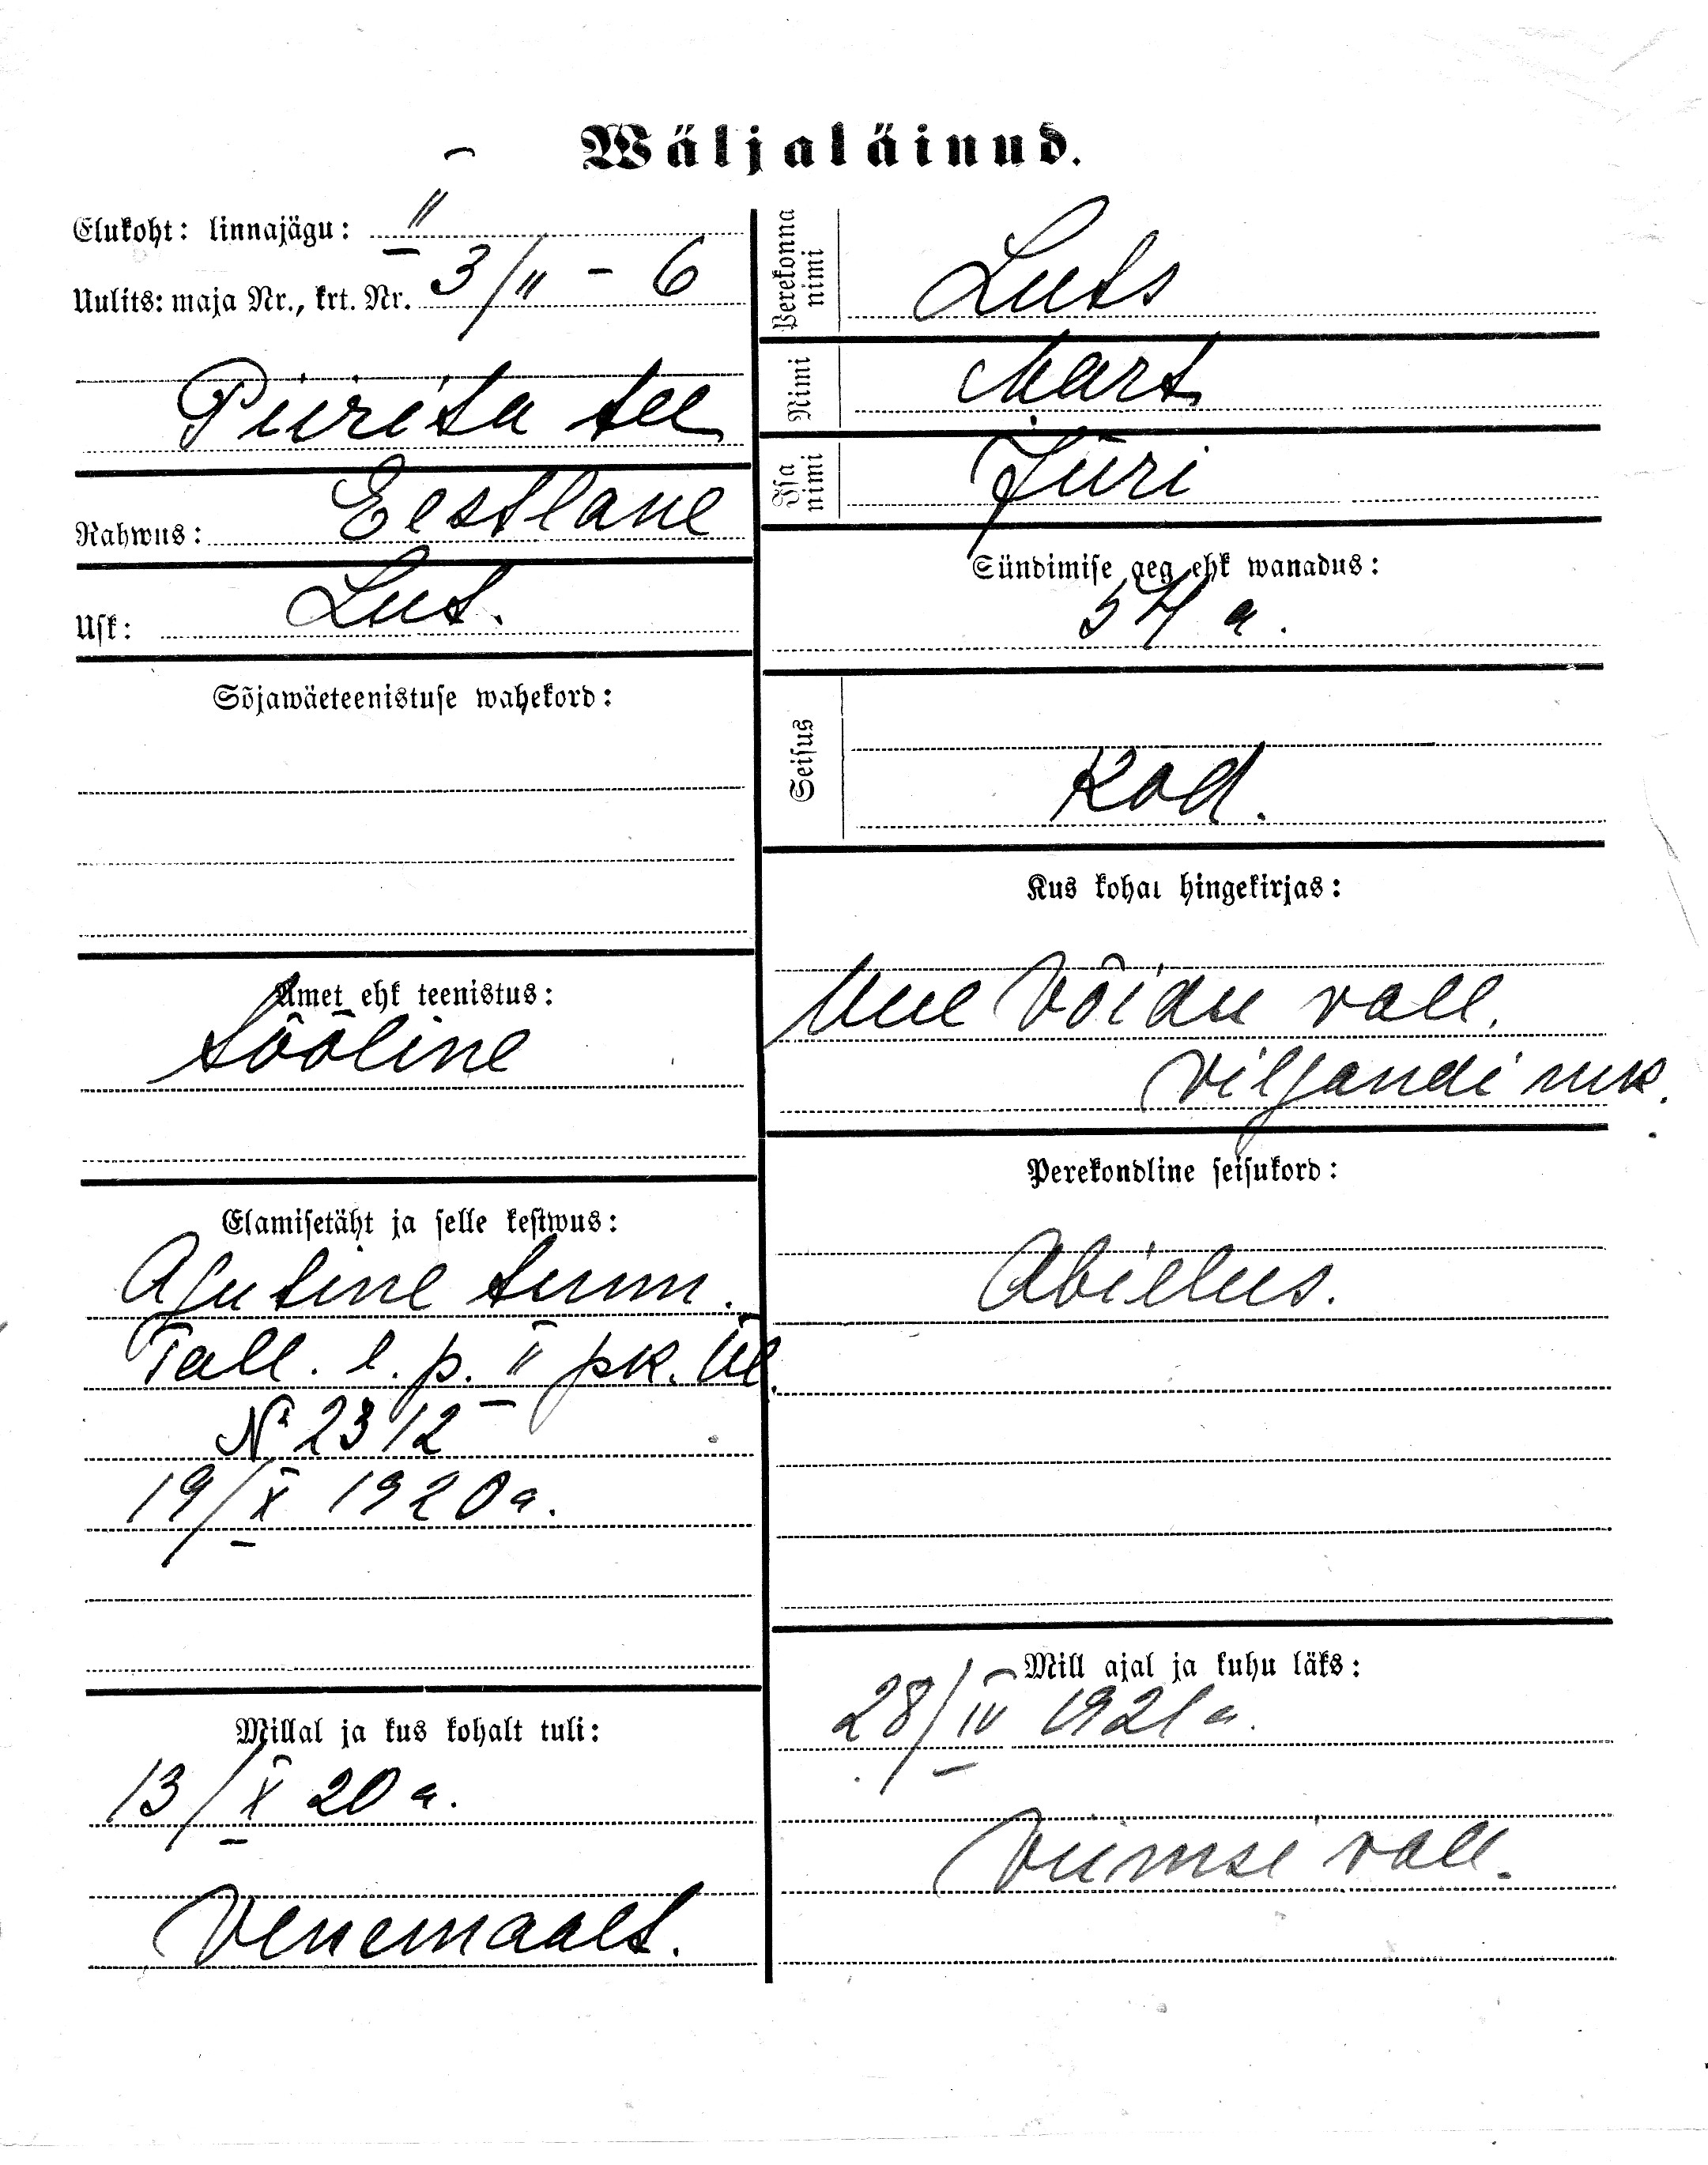 Wäljaläinud.
Elukoht: linnajägu: II
Uulits: maja Nr., krt. Nr. 3/II - 6
Piirita tee
Rahwus: Eestlane
Usk: Lut.
Sõjawäeteenistuse wahekord:
Amet ehk teenistus:
tööline
Elamisetäht ja selle kestwus:
Ajutine tunn.
Tall. l. p. II pk. ül.
№ 2312
19/X 1920 a.
Millal ja kus kohalt tuli:
13/X 20 a.
Venemaalt.
Perekonna nimi Luts
Nimi Mart
Isa nimi Jüri
Sündimise aeg ehk wanadus:
54 a.
Seisus
Kod.
Kus kohal hingekirjas:
Uue Võidu vall.
Viljandi mk.
Perekondline seisukord:
Abielus.
Mill ajal ja kuhu läks:
28/IV 1921 a.
Viimsi vall.